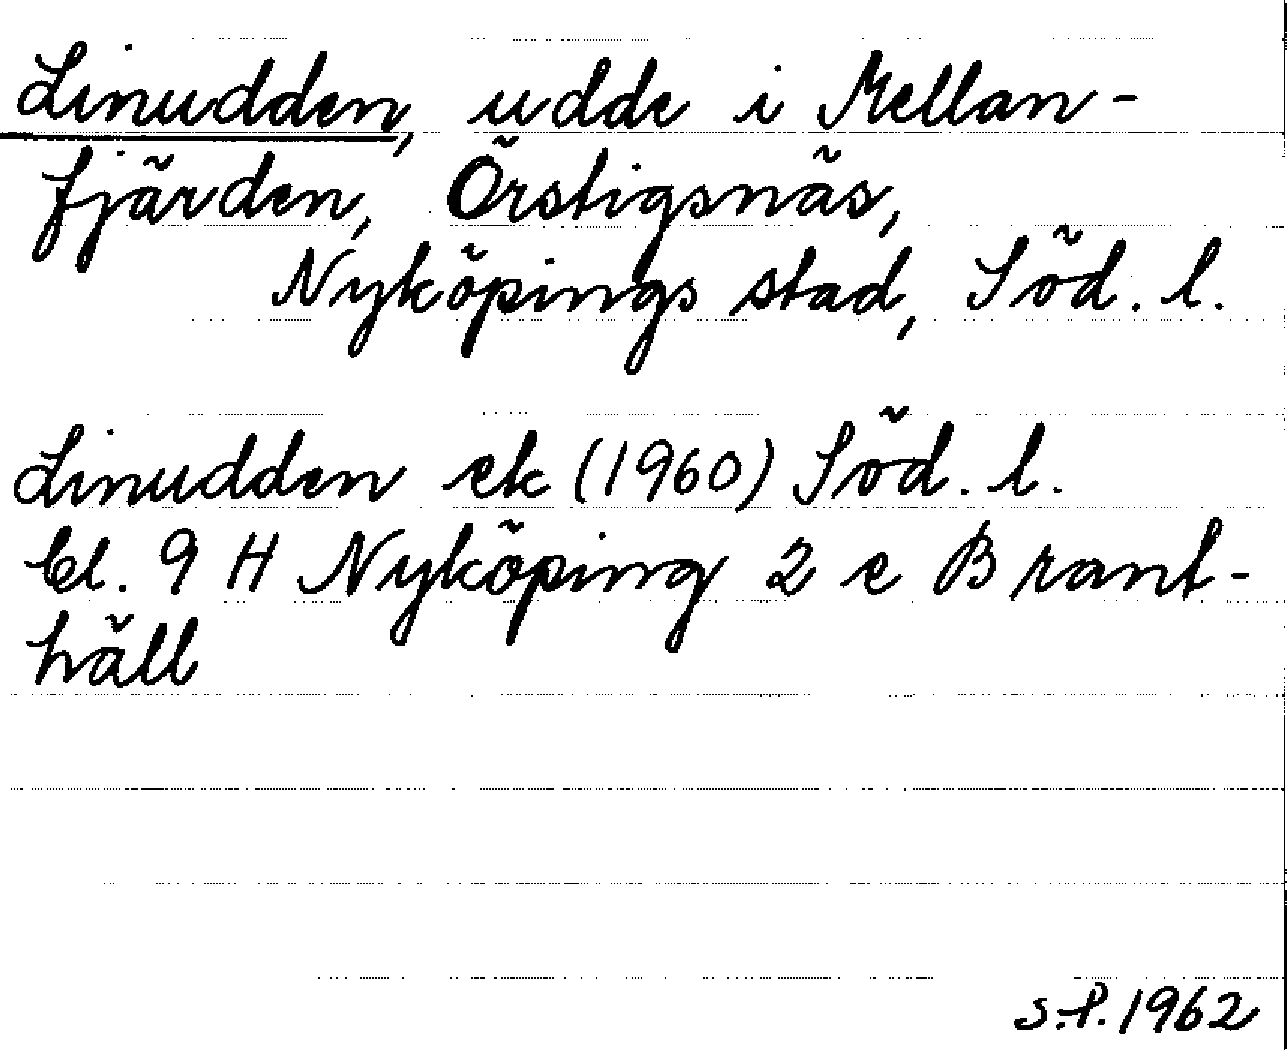 Linudden, udde i Mellan-
fjärden, Örstigsnäs,
Nyköpings stad, Söd. l.
Linudden ek (1960) Söd. l.
bl. 9 H Nyköping 2 e Brant-
häll
S.P. 1962